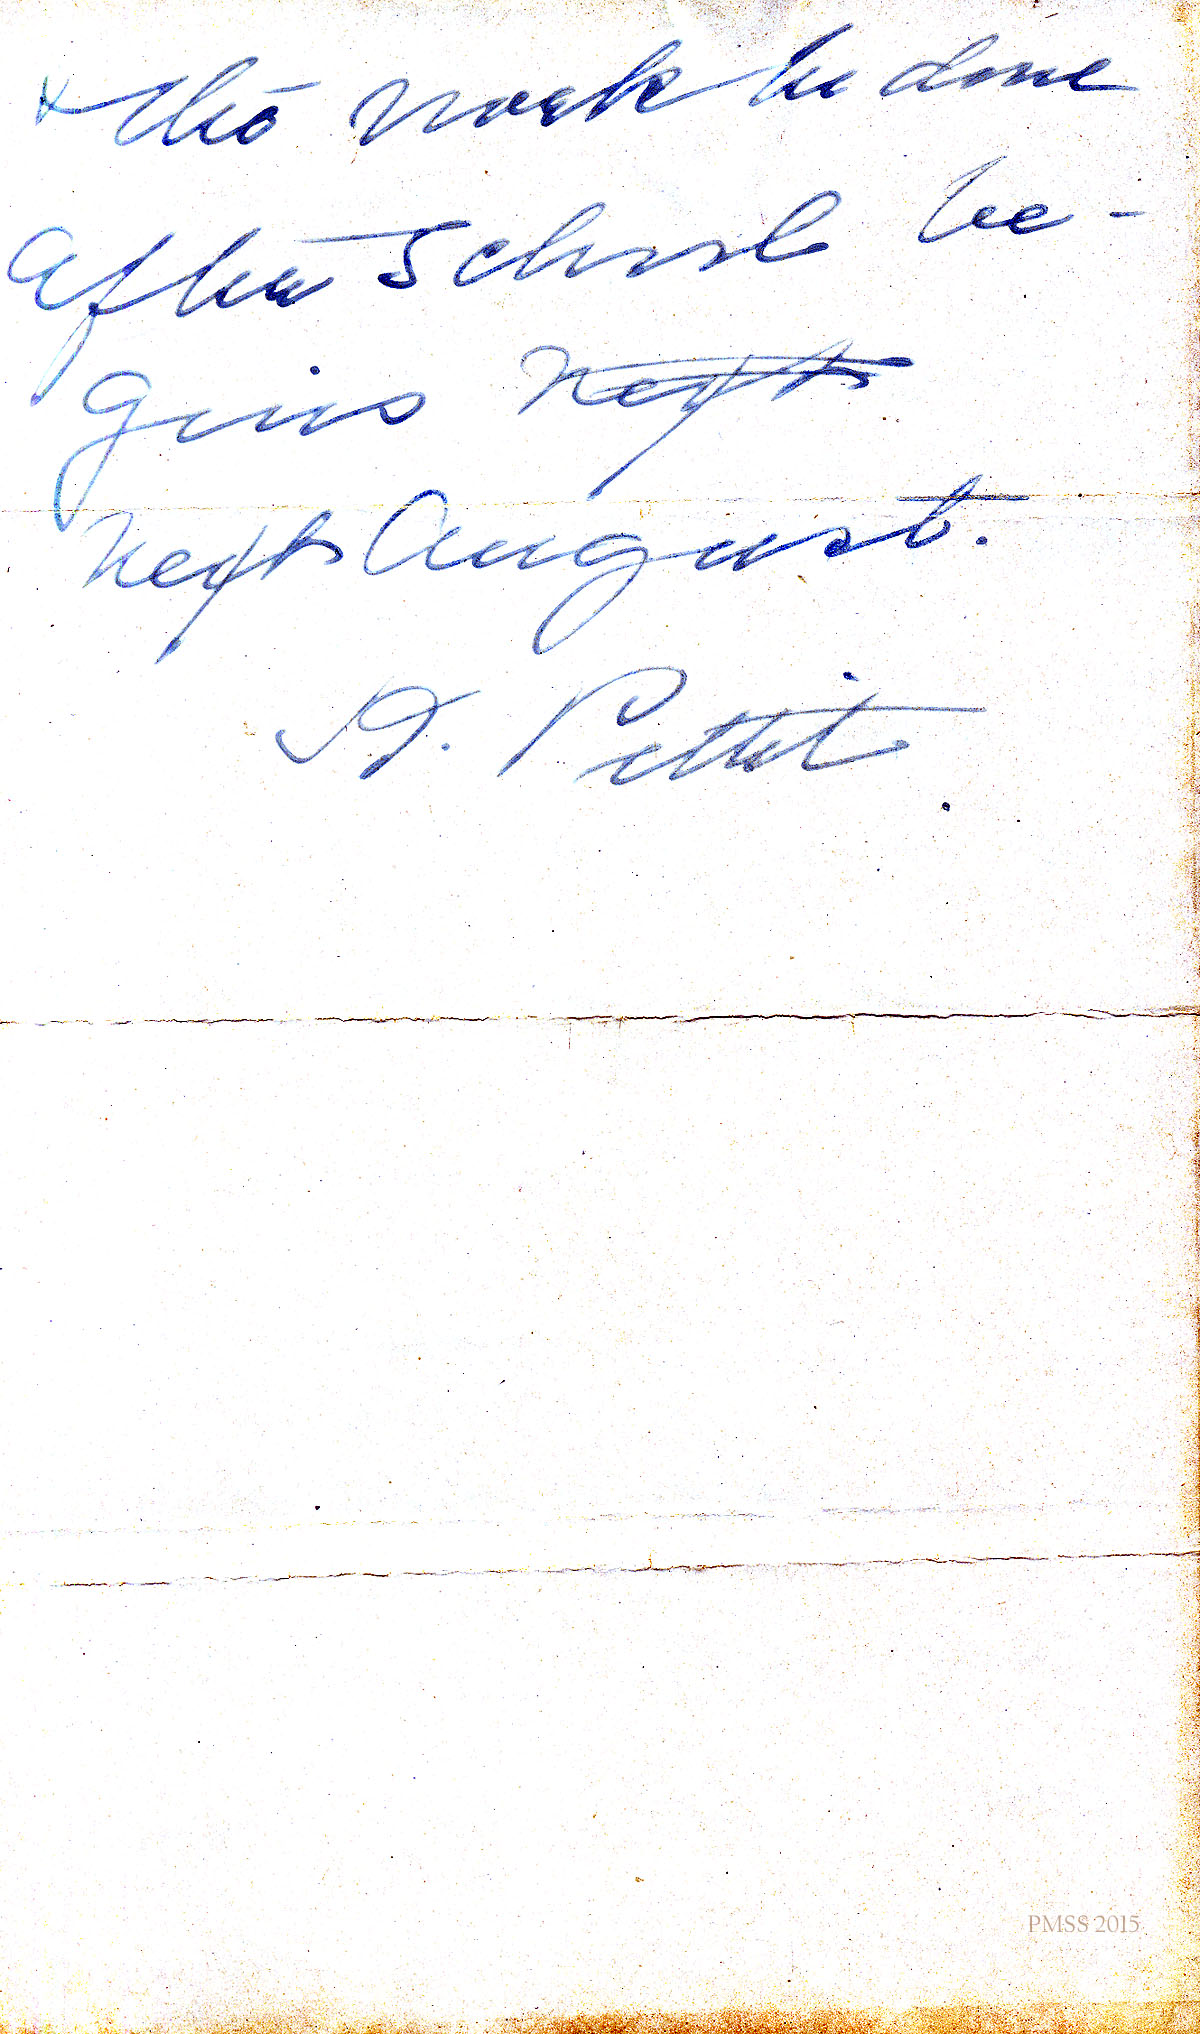 & this work be done
after School be-
gins next
next August.
K. Pettit.
PMSS 2015